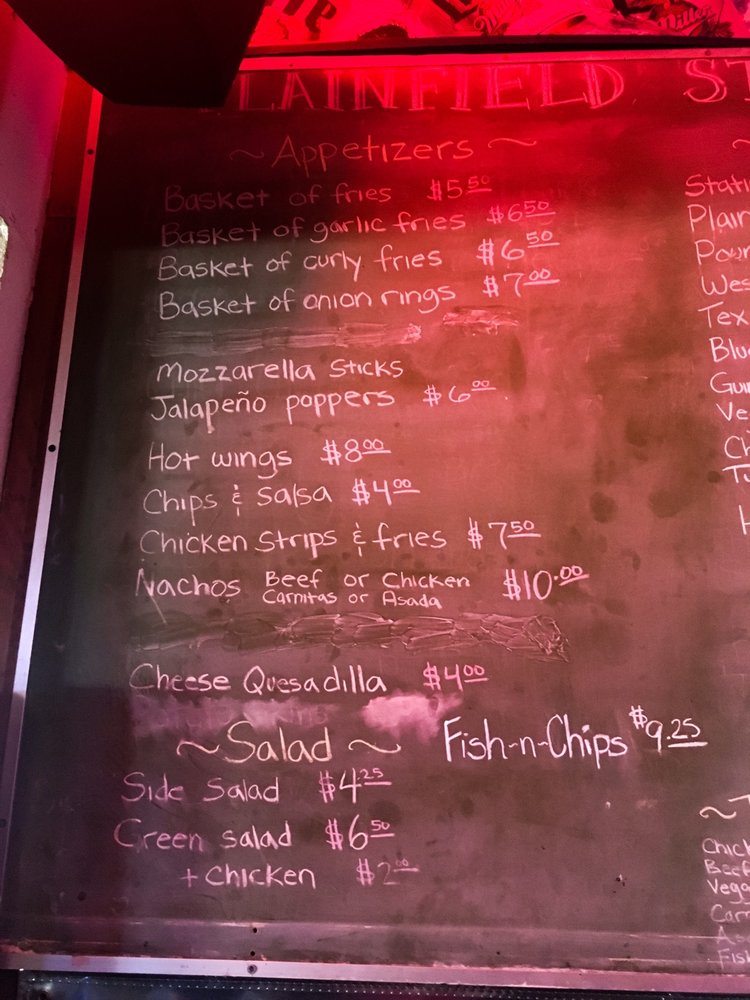 Miller
LAINFIELD ST
~ Appetizers ~
Basket of fries $5.50
Basket of garlic fries $6.50
Basket of curly fries $6.50
Basket of onion rings $7.00
Mozzarella Sticks
Jalapeño poppers $6.00
Hot wings $8.00
Chips & Salsa $4.00
Chicken Strips & fries $7.50
Nachos Beef or Chicken $10.00
Carnitas or Asada
Cheese Quesadilla $4.00
~ Salad ~
Fish-n-Chips $9.25
Side Salad $4.25
Green salad $6.50
+ chicken $2.00
Stati
Plain
Pow
Wes
Tex
Blu
Gui
Ve
Ch
Tu
H
~T
Chick
Beef
Vega
Carn
As
Fish